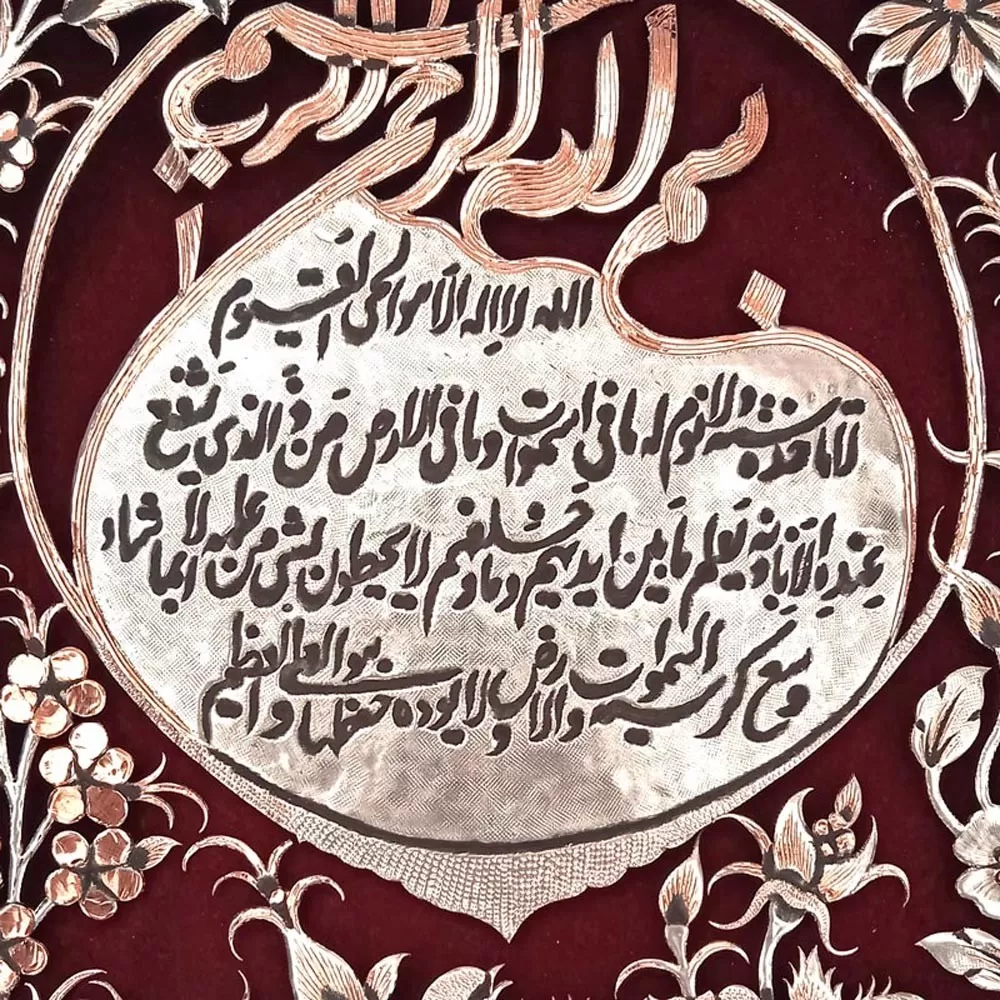 بسم الله الرحمن الرحیم
الله لا اله الا هو الحی القیوم
لا تاخذه سنة ولا نوم له ما فی السموات وما فی الارض من ذ الذی یشفع
عنده الا باذنه یعلم ما بین ایدیهم وما خلفهم لا یحیطون بشی من علمه الا بما شاء و
وسع کرسیه السموات والارض ولا یوده حفظهما و هو العلی العظیم